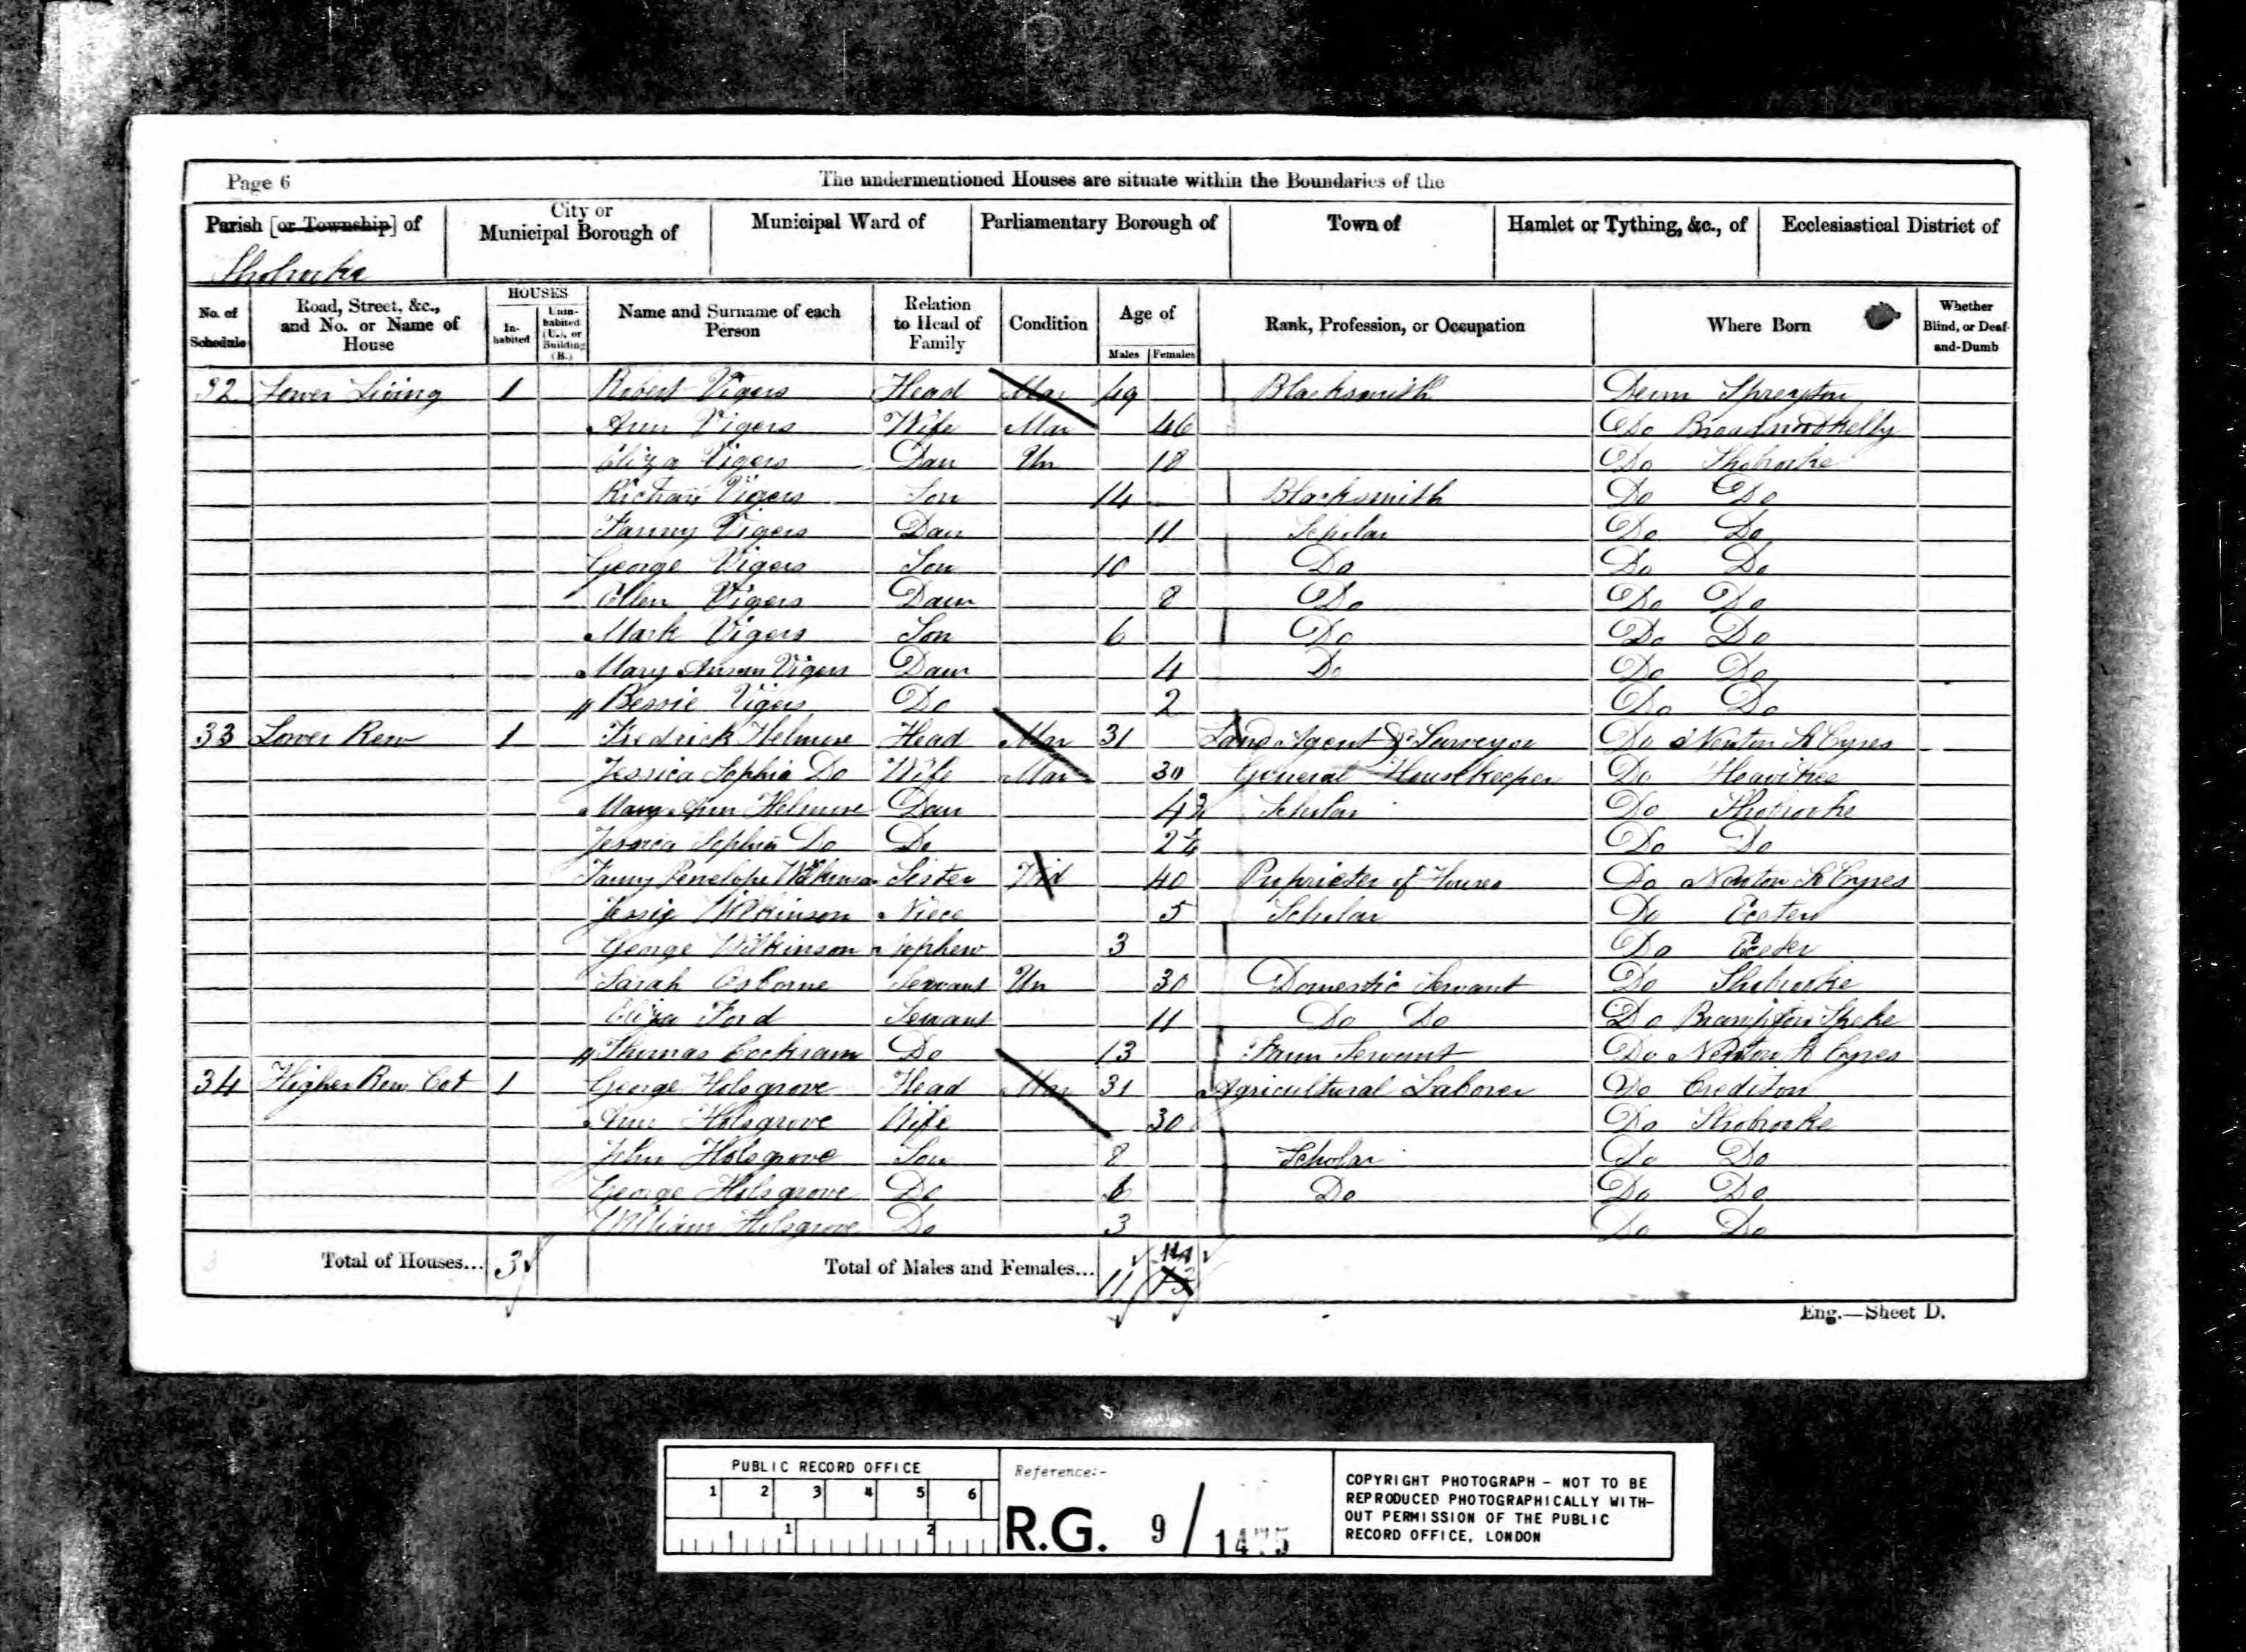 Page 6
The undermentioned Houses are situate within the Boundaries of the
Parish [or Township] of
City or Municipal Borough of
Municipal Ward of
Parliamentary Borough of
Town of
Hamlet or Tything, &c., of
Ecclesiastical District of
Shobrooke
No. of Schedule
Road, Street, &c., and No. or Name of House
HOUSES
In-habited
Unin-habited (U.), or Building (B.)
Name and Surname of each Person
Relation to Head of Family
Condition
Age of
Males
Females
Rank, Profession, or Occupation
Where Born
Whether Blind, or Deaf-and-Dumb
32 Lower Living 1 Robert Vigers Head Mar 49 Blacksmith Devon Spreyton
Ann Vigers Wife Mar 46 Do Broadwoodkelly
Eliza Vigers Dau Un 18 Do Shobrooke
Richard Vigers Son 14 Blacksmith Do Do
Fanny Vigers Dau 11 Scholar Do Do
George Vigers Son 10 Do Do Do
Ellen Vigers Daur 8 Do Do Do
Mark Vigers Son 6 Do Do Do
Mary Vigers Daur 4 Do Do Do
Bessie Vigers Do 2 Do Do
33 Lower Rew 1 Fredrick Helmore Head Mar 31 Land Agent & Surveyor Do Newton St Cyres
Jessica Sophia Do Wife Mar 30 General Housekeeper Do Heavitree
Mary Ann Helmore Dau 4 Scholar Do Shobrooke
Jessica Sophia Do Do 2 Do Do
Fanny Penelope Wilkinson Sister Wid 40 Proprietor of Houses Do Newton St Cyres
Jessie Wilkinson Niece 5 Scholar Do Exeter
George Wilkinson Nephew 3 Do Exeter
Sarah Osborne Servant Un 30 Domestic Servant Do Shobrooke
Eliza Ford Servant 11 Do Do Do Brampford Speke
Thomas Cockram Do 13 Farm Servant Do Newton St Cyres
34 Higher Rew Cot 1 George Holsgrove Head Mar 31 Agricultural Laborer Do Crediton
Ann Holsgrove Wife 30 Do Shobrooke
John Holsgrove Son 8 Scholar Do Do
George Holsgrove Do 6 Do Do Do
William Holsgrove Do 3 Do Do
Total of Houses... 3
Total of Males and Females... 11 14
Eng.—Sheet D.
PUBLIC RECORD OFFICE
1 2 3 4 5 6
1 2
Reference:-
R.G. 9 / 1475
COPYRIGHT PHOTOGRAPH - NOT TO BE
REPRODUCED PHOTOGRAPHICALLY WITH-
OUT PERMISSION OF THE PUBLIC
RECORD OFFICE, LONDON